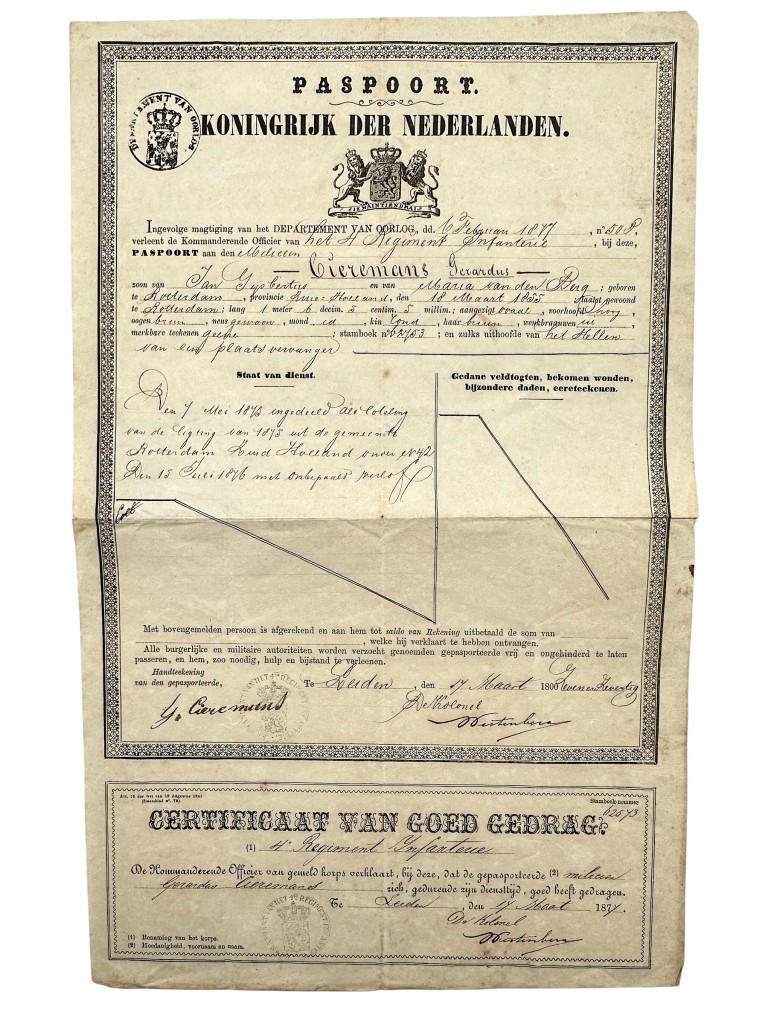 PASPOORT.
DEPARTEMENT VAN OORLOG
KONINGRIJK DER NEDERLANDEN.
JE MAINTIENDRAI
Ingevolge magtiging van het DEPARTEMENT VAN OORLOG, dd. 6 Februari 1877, no 50
verleent de Kommanderende Officier van het 4e Regiment Infanterie, bij deze,
PASPOORT aan den Milicien
Cieremans Gerardus
zoon van Jan Gijsbertus en van Maria van den Berg; geboren
te Rotterdam, provincie Zuid Holland, den 18 Maart 1855 laatst gewoond
te Rotterdam; lang 1 meter 6 decim. 5 centim. 5 millim.; aangezigt ovaal, voorhoofd hoog,
oogen bruin, neus gewoon, mond id, kin rond, haar bruin, wenkbraauwen id
merkbare teekenen geene; stamboek no 62753; en zulks uithoofde van het stellen
van een plaatsvervanger
Staat van dienst.
Gedane veldtogten, bekomen wonden,
bijzondere daden, eereteekenen.
Den 7 Mei 1875 ingedeeld als loteling
van de ligting van 1875 uit de gemeente
Rotterdam Zuid Holland onder No 42
Den 15 Juli 1876 met onbepaald verlof
Met bovengemelden persoon is afgerekend en aan hem tot saldo van Rekening uitbetaald de som van
, welke hij verklaart te hebben ontvangen.
Alle burgerlijke en militaire autoriteiten worden verzocht genoemden gepasporteerde vrij en ongehinderd te laten
passeren, en hem, zoo noodig, hulp en bijstand te verleenen.
Handteekening
van den gepasporteerde,
Te Leiden, den 17 Maart 1800 Zeven en Zeventig
De Kolonel
G. Cieremans
Art. 10 der wet van 19 Augustus 1861
(Staatsblad no. 72).
Stamboek nummer
62573
CERTIFICAAT VAN GOED GEDRAG.
(1) 4e Regiment Infanterie
De Kommanderende Officier van gemeld korps verklaart, bij deze, dat de gepasporteerde (2) milicien
Gerardus Cieremans zich, gedurende zijn diensttijd, goed heeft gedragen.
Te Leiden, den 17 Maart 1877.
De Kolonel
(1) Benaming van het korps.
(2) Hoedanigheid, voornaam en naam.